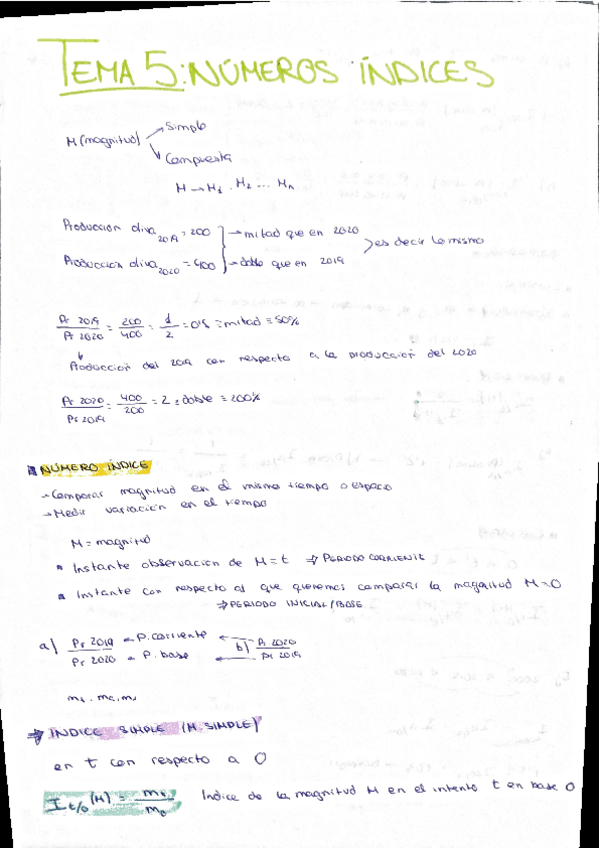 TEMA 5: NÚMEROS ÍNDICES
M (magnitud) → Simple
→ Compuesta
M → M1 . M2 ... Mn
Producción oliva 2019 = 200 → mitad que en 2020
Producción oliva 2020 = 400 → doble que en 2019
> es decir lo mismo
Pr 2019 / Pr 2020 = 200/400 = 1/2 = 0'5 = mitad = 50%
Producción del 2019 con respecto a la producción del 2020
Pr 2020 / Pr 2019 = 400/200 = 2 = doble = 200%
NÚMERO ÍNDICE
→ Comparar magnitud en el mismo tiempo o espacio
→ Medir variación en el tiempo
M = magnitud
Instante observación de M = t ⇒ PERIODO CORRIENTE
Instante con respecto al que queremos comparar la magnitud M = 0
⇒ PERIODO INICIAL/BASE
a) Pr 2019 ← P. corriente → b) Pr 2020
Pr 2020 ← P. base ← Pr 2019
⇒ ÍNDICE SIMPLE (M. SIMPLE)
en t con respecto a 0
I t/0 (M) = mt / m0 Indice de la magnitud M en el intento t en base 0